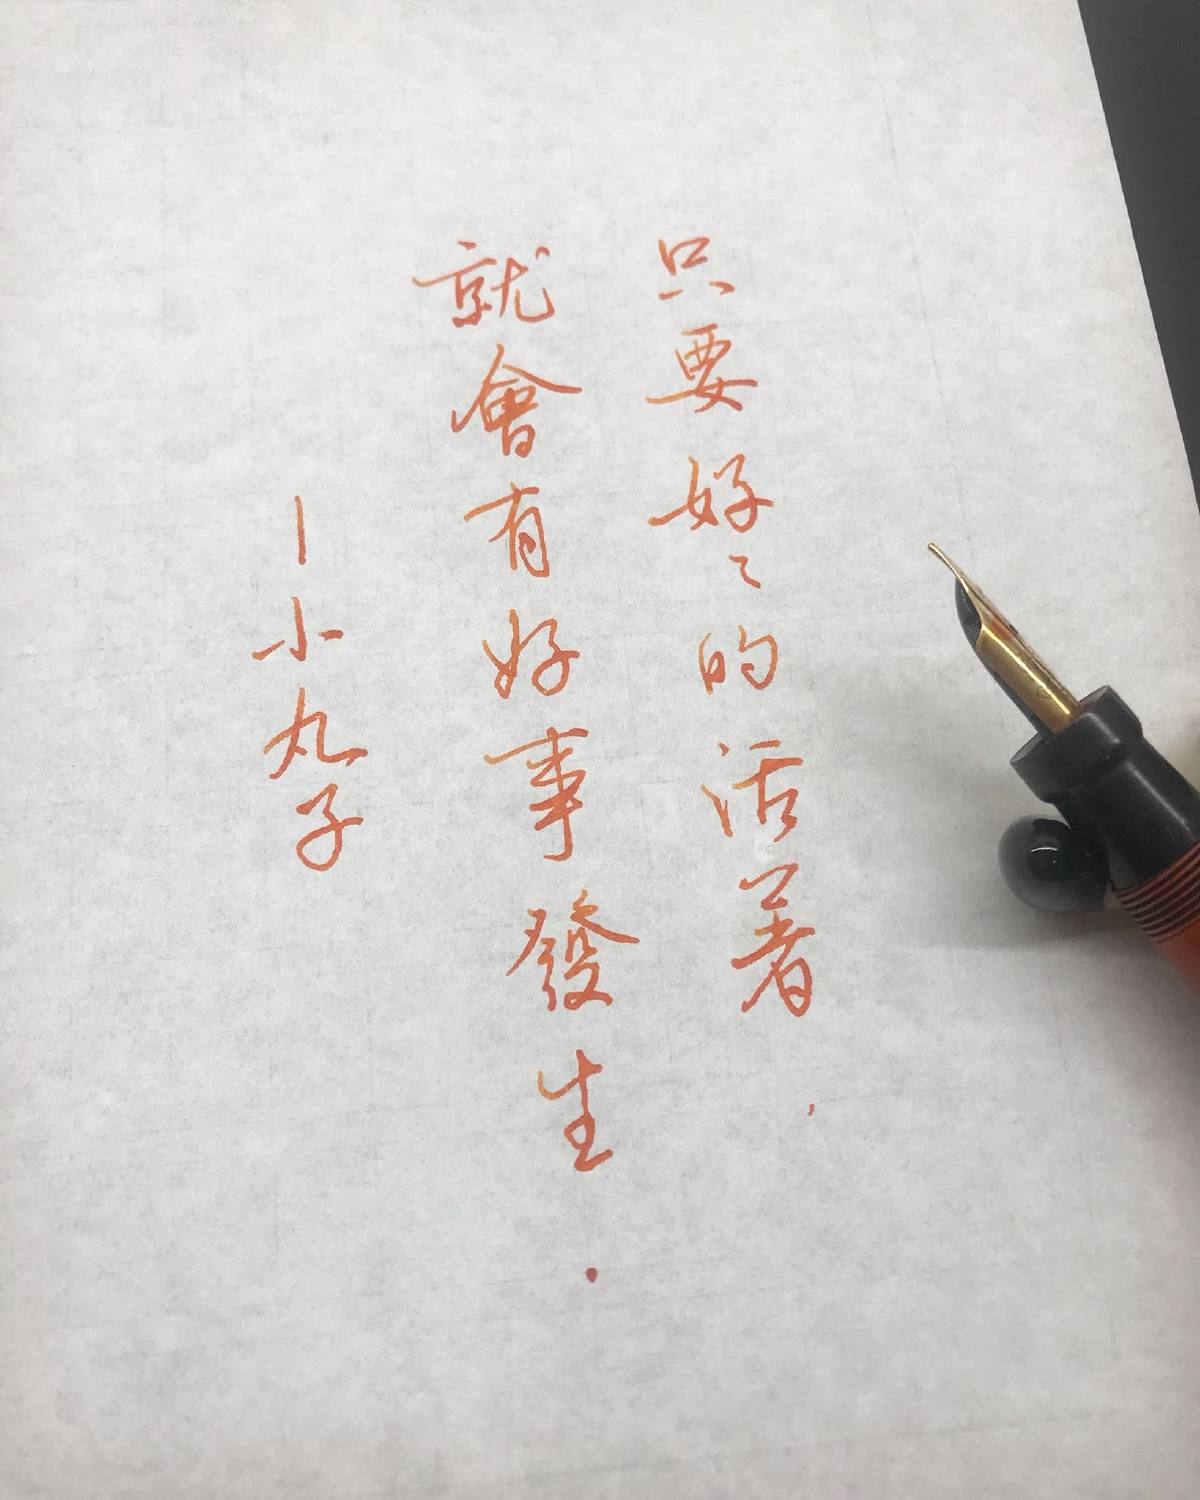 只要好々的活著，
就會有好事發生．
—小丸子